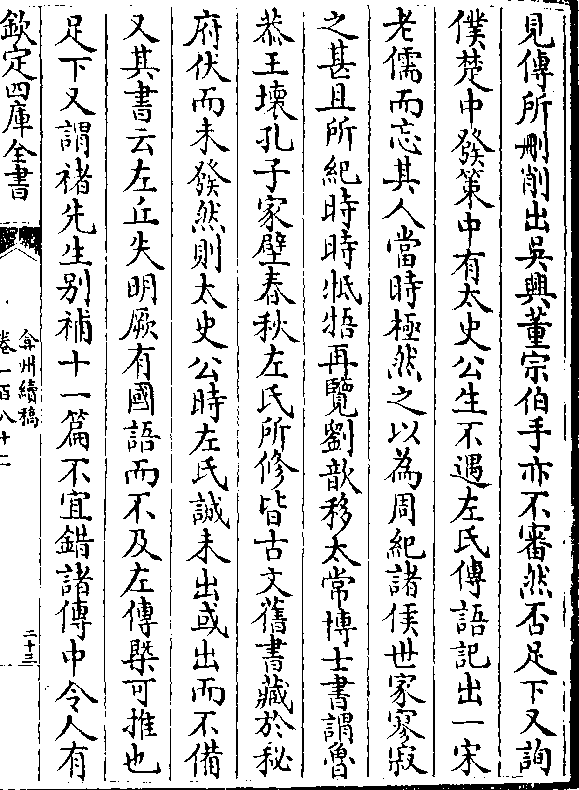 見傳所刪削出吳興董宗伯手亦不審然否足下又詢
僕楚中發策中有太史公生不遇左氏傳語記出一宋
老儒而忘其人當時極然之以為周紀諸侯世家寥寂
之甚且所紀時時牴牾再覽劉歆移太常博士書謂魯
恭王壊孔子家壁春秋左氏所修皆古文舊書藏於秘
府伏而未發然則太史公時左氏誠未出或出而不備
又其書云左丘失明厥有國語而不及左傳槩可推也
足下又謂褚先生别補十一篇不宜錯諸傳中令人有
欽定四庫全書
弇州續稿
卷一百八十二
二十三